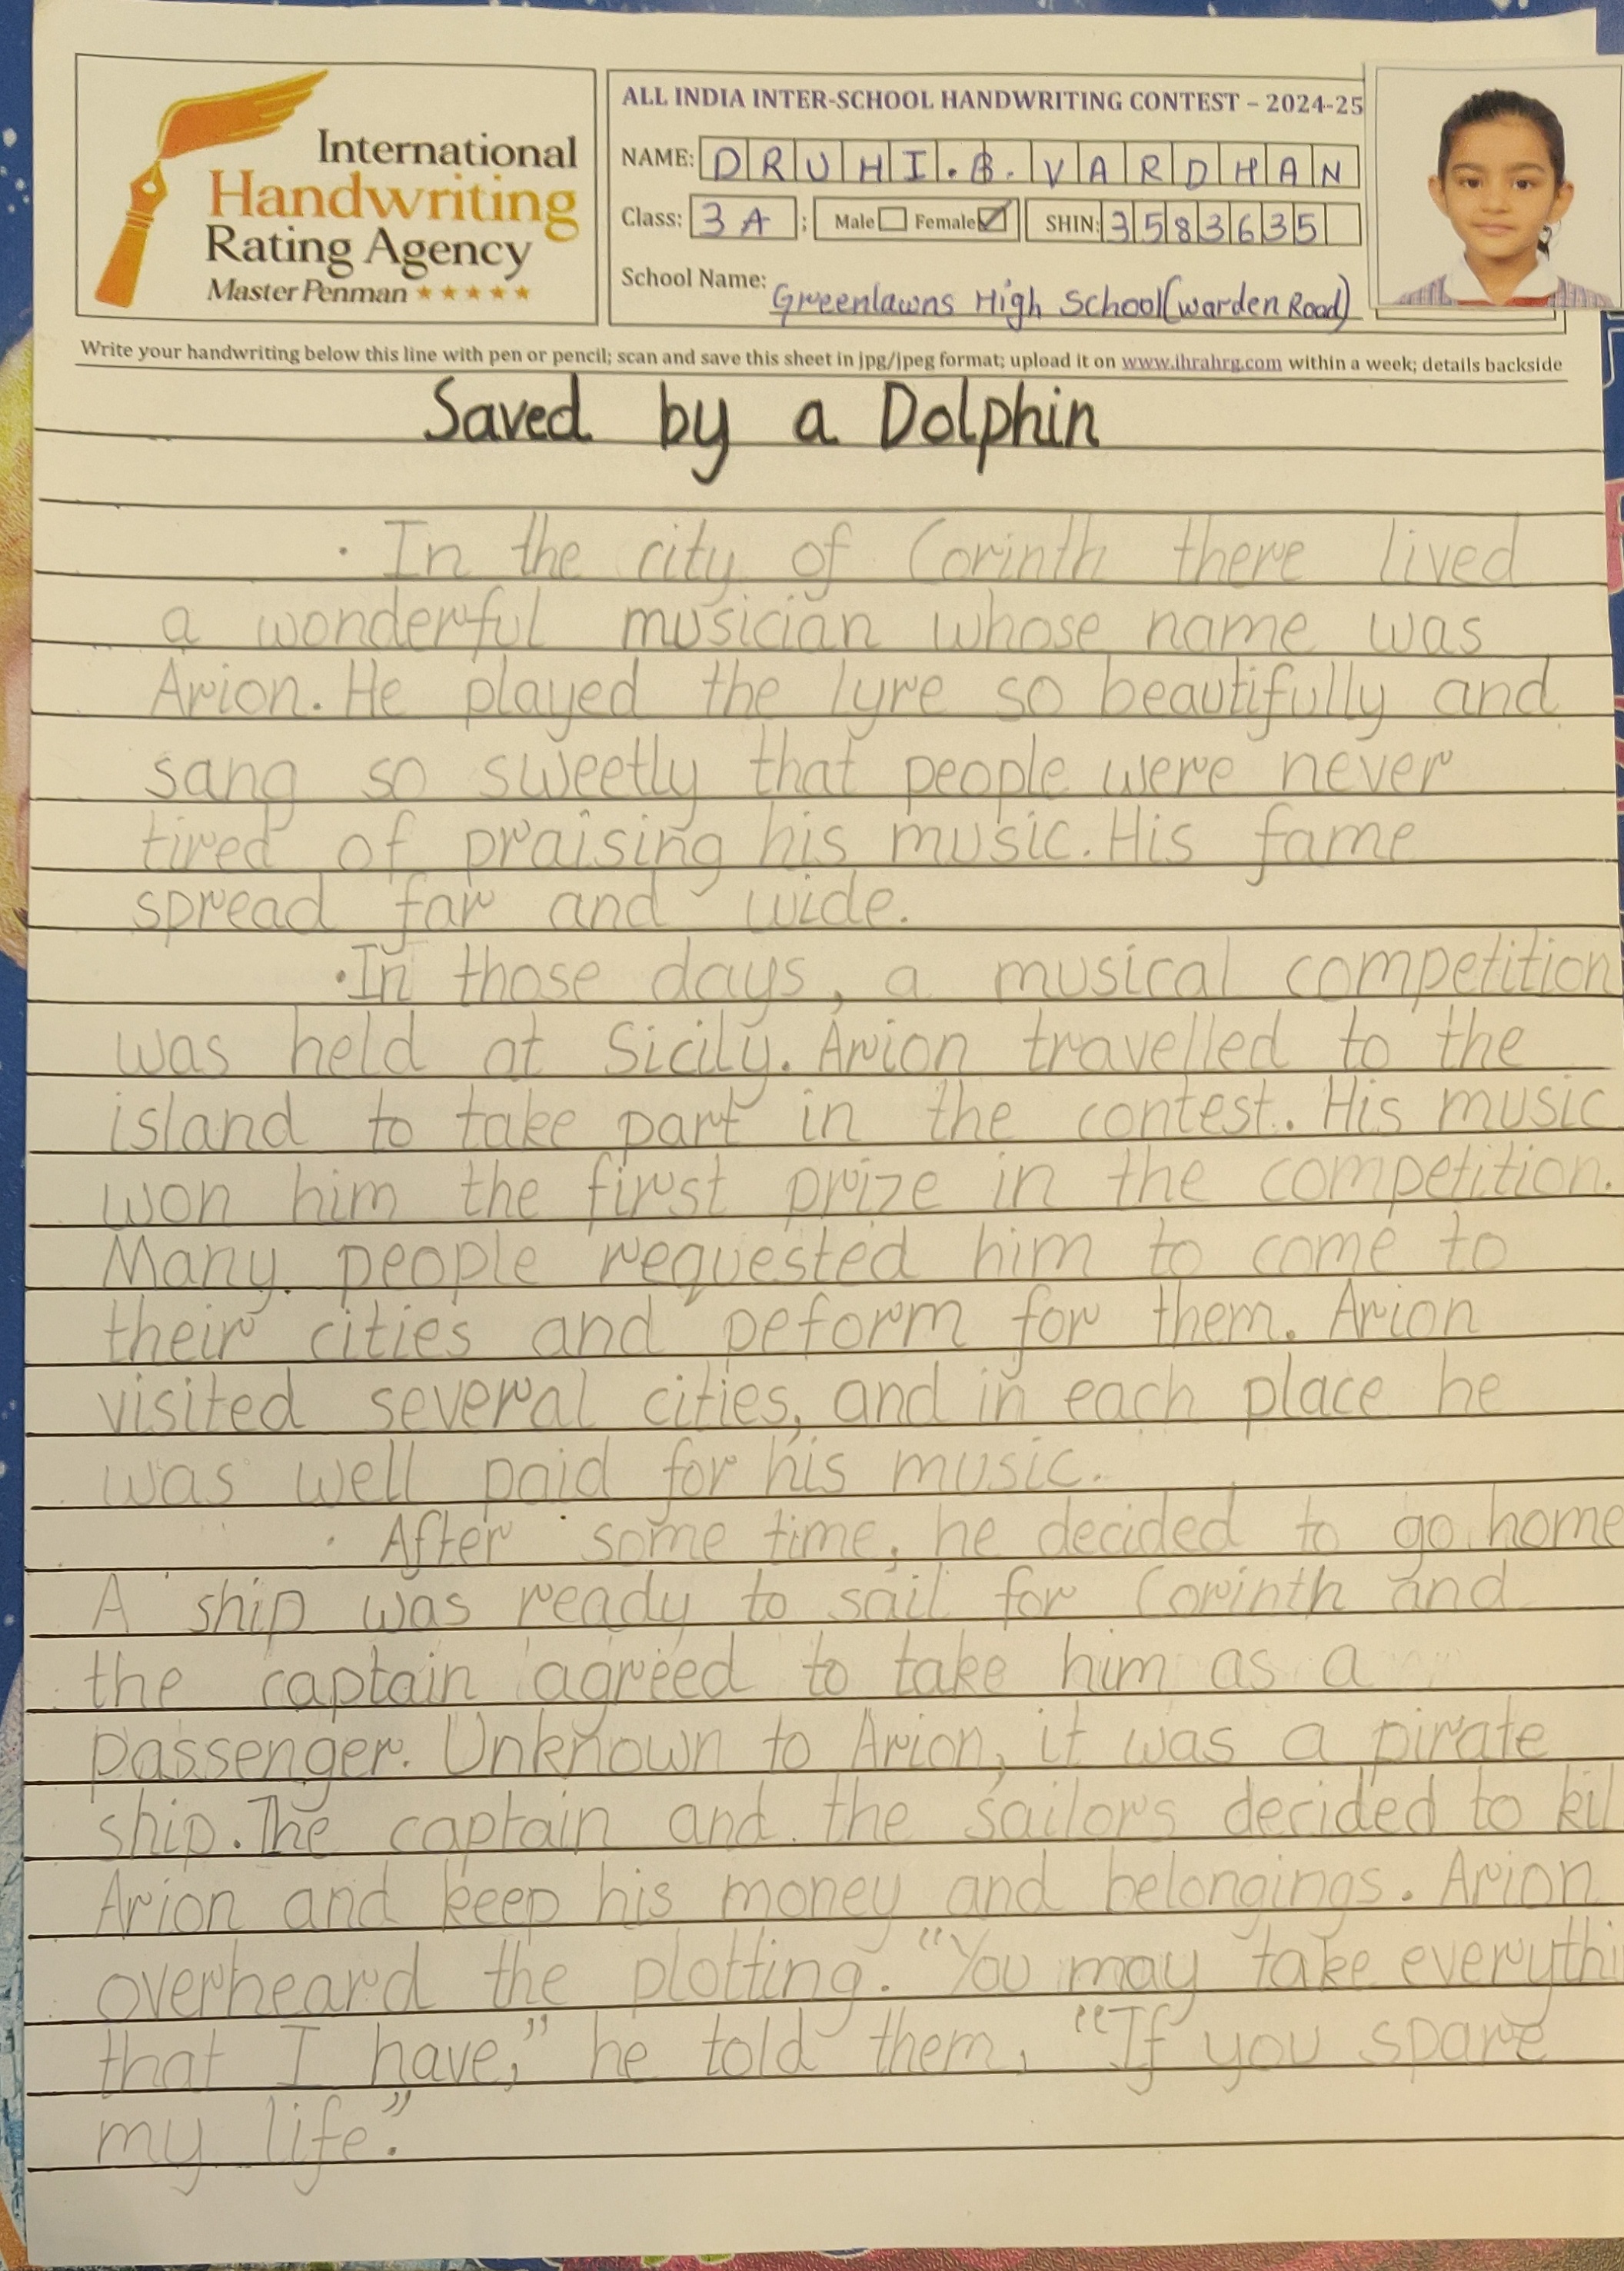 International
Handwriting
Rating Agency
Master Penman
ALL INDIA INTER-SCHOOL HANDWRITING CONTEST – 2024-25
NAME: DRUHI.B.VARDHAN
Class: 3 A ; Male Female SHIN: 3583635
School Name: Greenlawns High School(Warden Road)
Write your handwriting below this line with pen or pencil; scan and save this sheet in jpg/jpeg format; upload it on www.ihrahrg.com within a week; details backside
Saved by a Dolphin
In the city of Corinth there lived
a wonderful musician whose name was
Arion. He played the lyre so beautifully and
sang so sweetly that people were never
tired of praising his music. His fame
spread far and wide.
In those days, a musical competition
was held at Sicily. Arion travelled to the
island to take part in the contest. His music
won him the first prize in the competition.
Many people requested him to come to
their cities and peform for them. Arion
visited several cities, and in each place he
was well paid for his music.
After some time, he decided to go home
A ship was ready to sail for Corinth and
the captain agreed to take him as a
passenger. Unknown to Arion, it was a pirate
ship. The captain and the sailors decided to kil
Arion and keep his money and belongings. Arion
overheard the plotting. "You may take everythi
that I have," he told them, "If you spare
my life."